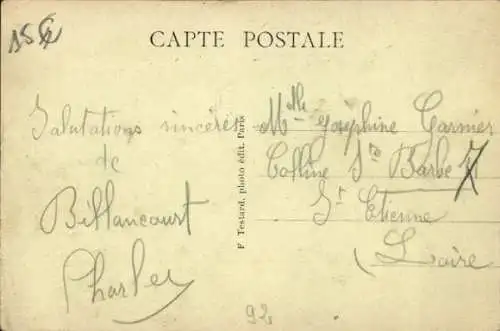 CARTE POSTALE
Salutations sincères
de
Billancourt
Charles
F Testard, photo édit. Paris
Mlle Joséphine Garnier
Colline Ste Barbe
St Etienne
(Loire
92